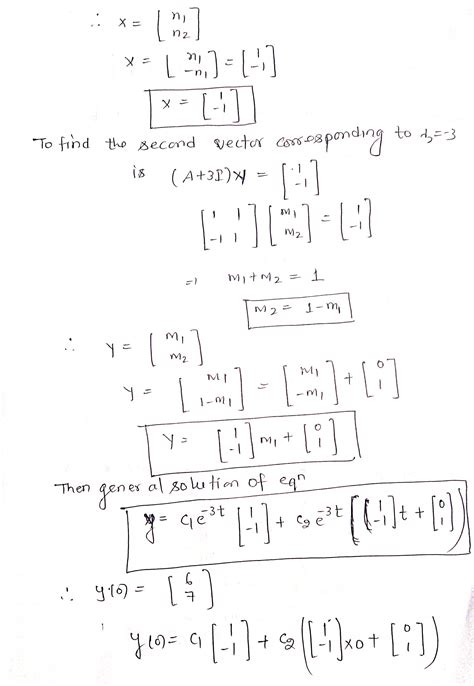 ∴ x = [n1 n2]
x = [n1 -n1] = [1 -1]
x = [1 -1]
To find the second vector corresponding to λ2=-3
is (A+3I)y = [1 -1]
[1 1 -1 1] [m1 m2] = [1 -1]
⇒ m1+m2 = 1
m2 = 1-m1
∴ y = [m1 m2]
y = [m1 1-m1] = [m1 -m1] + [0 1]
y = [1 -1] m1 + [0 1]
Then general solution of eqn
y = c1e^-3t [1 -1] + c2e^-3t [[1 -1]t + [0 1]]
∴ y(0) = [6 7]
y(0) = c1 [1 -1] + c2 ([1 -1]x0 + [0 1])